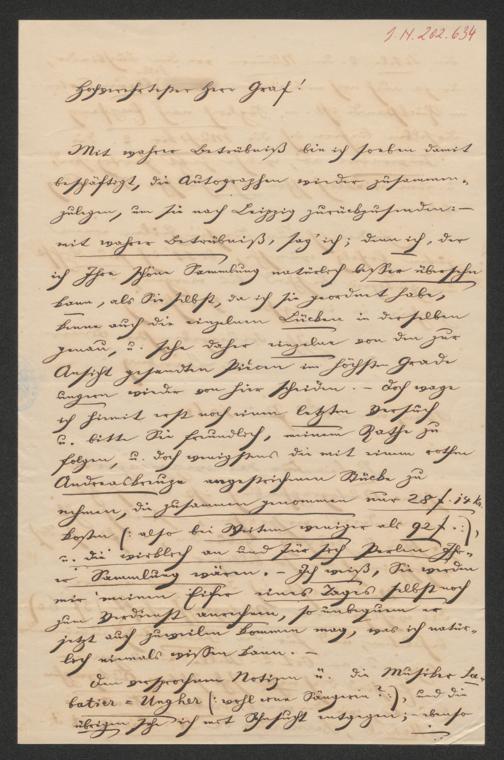 J.N. 202.634
Hochverehrtester Herr Graf!
Mit wahrer Betrübniß bin ich soeben damit
beschäftigt, die Autographen wieder zusammen-
zulegen, um sie nach Leipzig zurückzusenden: —
mit wahrer Betrübniß, sag' ich; denn ich, der
ich Ihre schöne Sammlung natürlich besser übersehn
kann, als Sie selbst, da ich sie geordnet habe,
kenne auch die einzelnen Lücken in derselben
genau, u. sehe daher einzelne von den zur
Ansicht gesandten Piècen im höchsten Grade
ungern wieder von hier scheiden. — Doch wage
ich hiemit erst noch einen letzten Versuch
u. bitte Sie freundlich, meinem Rathe zu
folgen, u. doch wenigstens die mit einem rothen
Andreaskreuze angestrichenen Stücke zu
nehmen, die zusammen genommen nur 28 f. 14 k.
kosten (: also bei Weitem weniger als 92 f. :),
u. die wirklich an und für sich Perlen Ih-
rer Sammlung wären. — Ich weiß, Sie werden
mir meinen Eifer eines Tages selbst noch
zum Verdienst anrechnen, so unbequem er
jetzt auch zuweilen kommen mag, was ich natür-
lich niemals wissen kann. —
Den versprochenen Notizen ü. die Musiker Sa-
batier = Ungher (: wohl eine Sängerin? :), und die
übrigen sehe ich mit Sehnsucht entgegen; ebenso